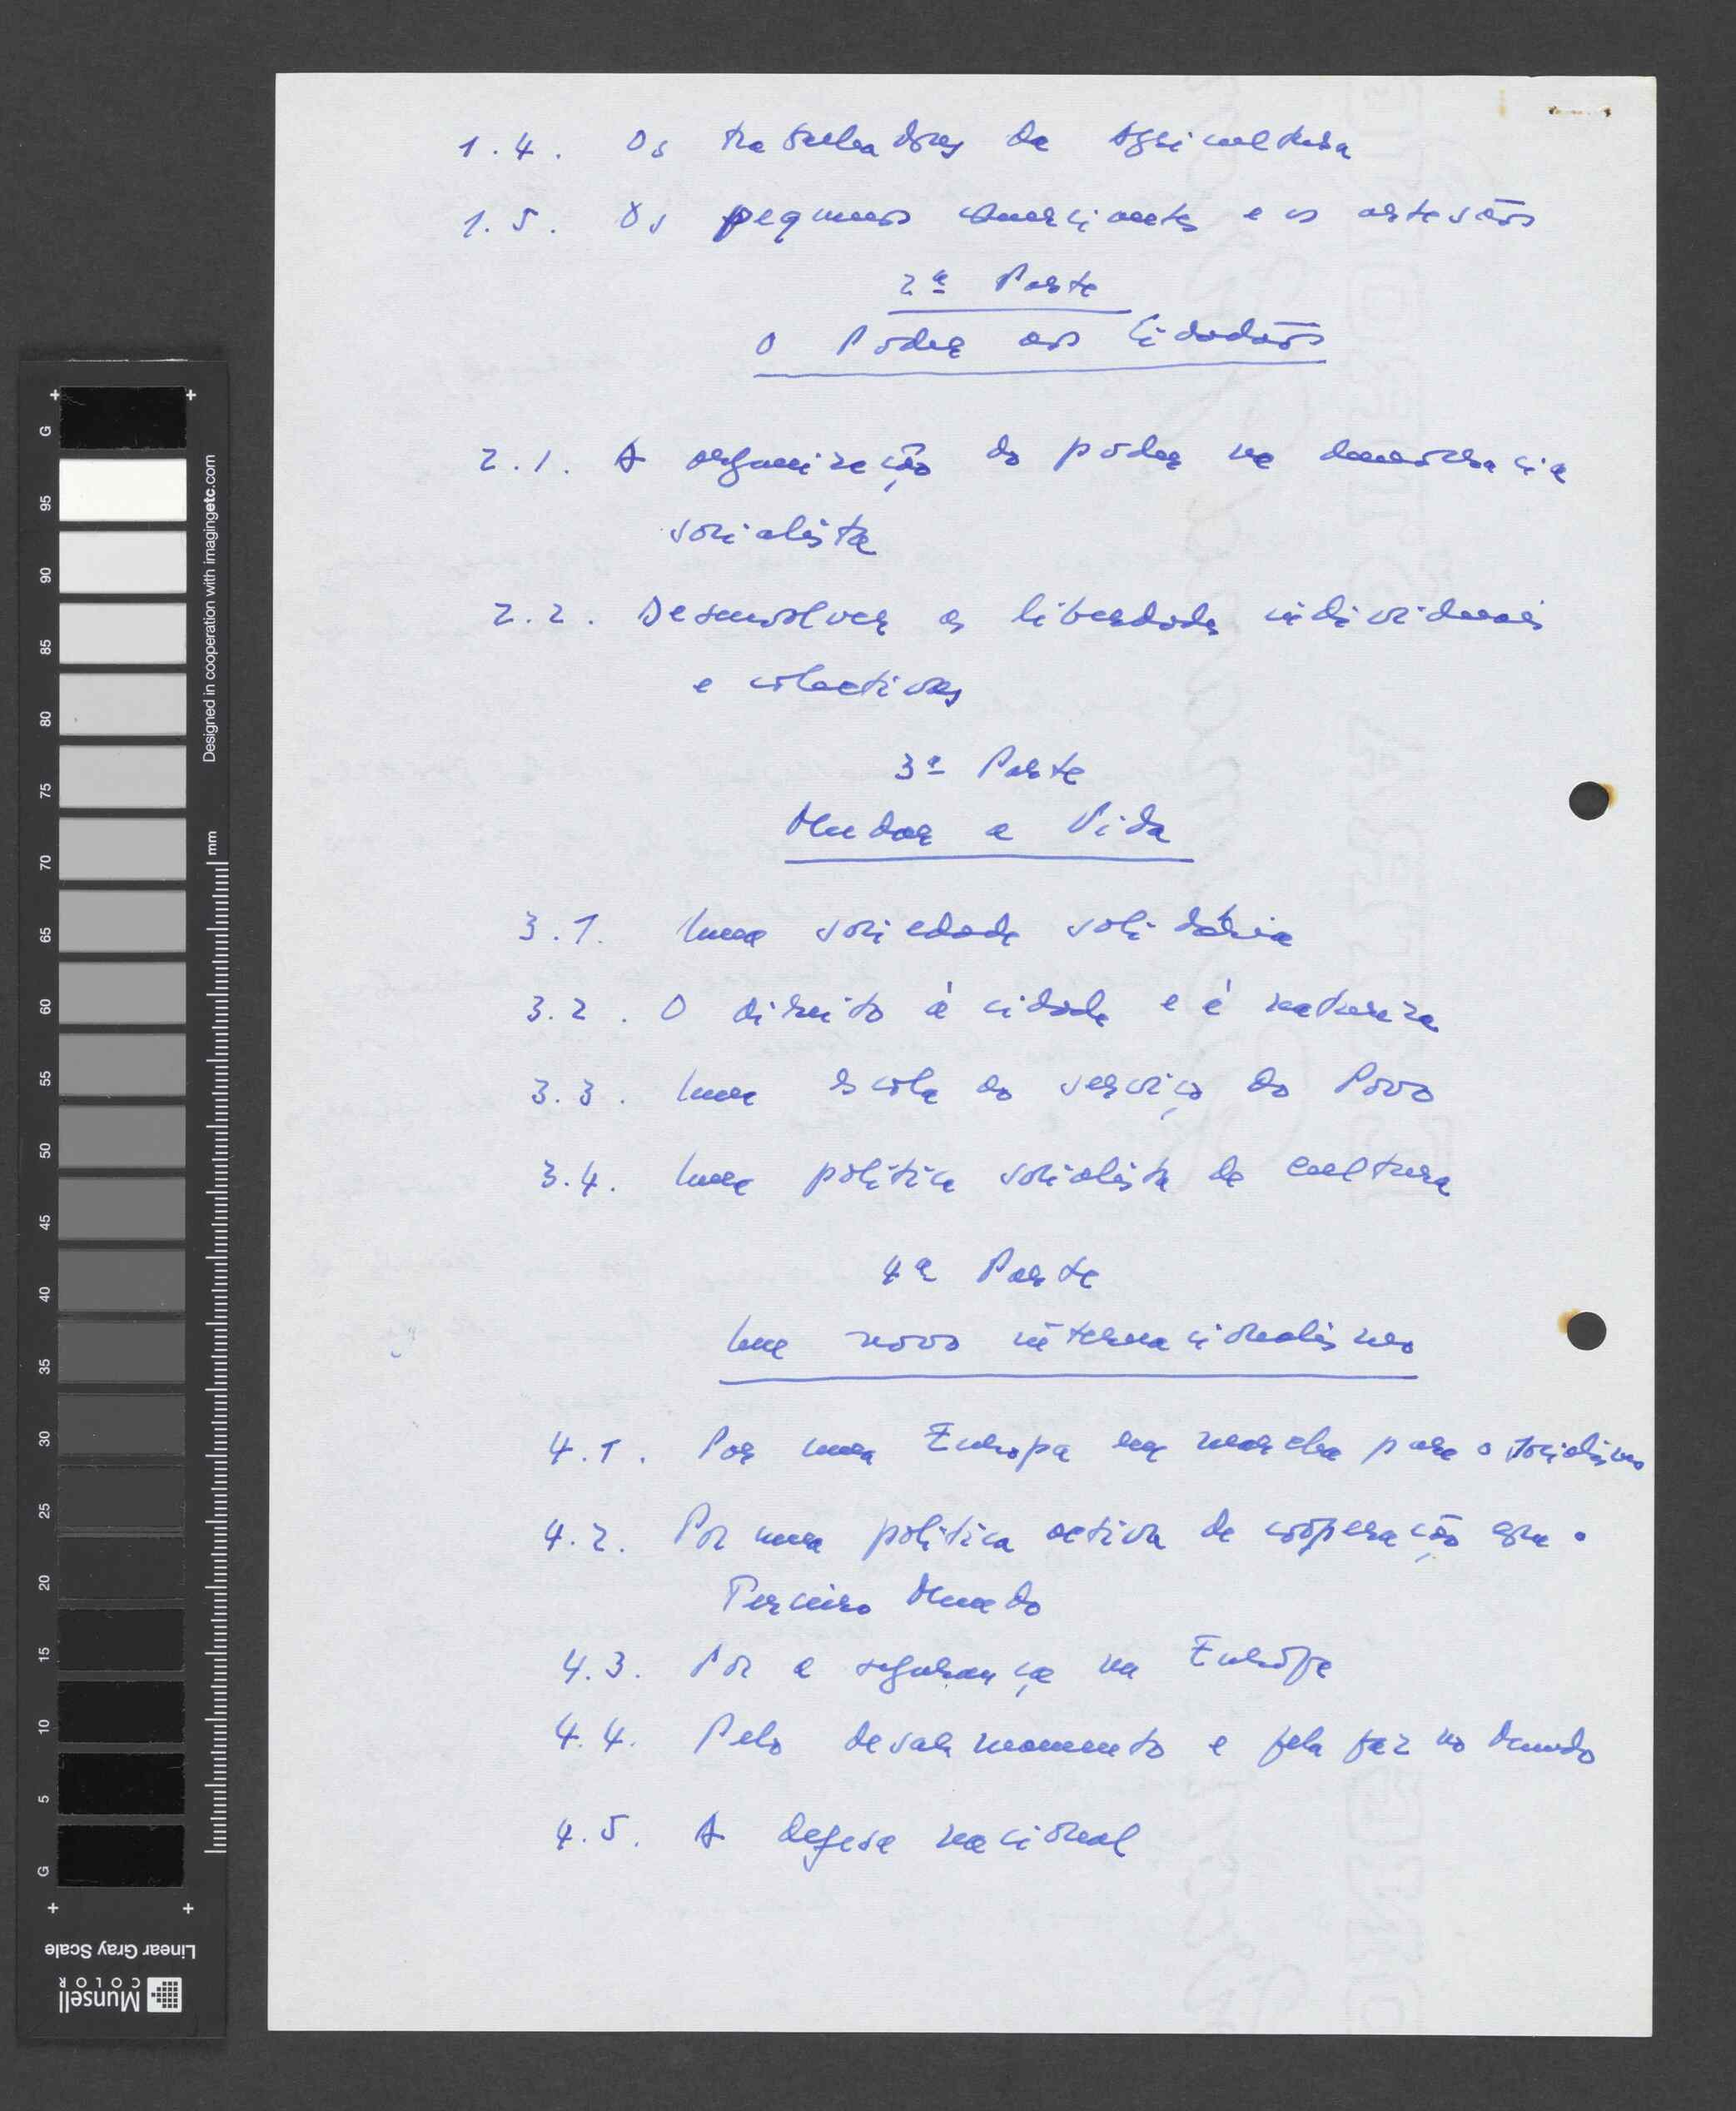 1.4. Os trabalhadores da Agricultura
1.5. Os pequenos comerciantes e os artesãos
2ª Parte
O Poder aos Cidadãos
2.1. A organização do poder na democracia
socialista
2.2. Desenvolver as liberdades individuais
e colectivas
3ª Parte
Mudar a Vida
3.1. Uma sociedade solidária
3.2. O direito à cidade e à natureza
3.3. Uma Escola ao serviço do Povo
3.4. Uma política socialista da Cultura
4ª Parte
Um novo internacionalismo
4.1. Por uma Europa em marcha para o Socialismo
4.2. Por uma política activa de cooperação com o
Terceiro Mundo
4.3. Por a segurança na Europa
4.4. Pelo desarmamento e pela paz no Mundo
4.5. A defesa nacional
G
95
90
85
80
75
70
65
60
55
50
45
40
35
30
25
20
15
10
5
G
Designed in cooperation with imagingetc.com
mm
Linear Gray Scale
Munsell
COLOR